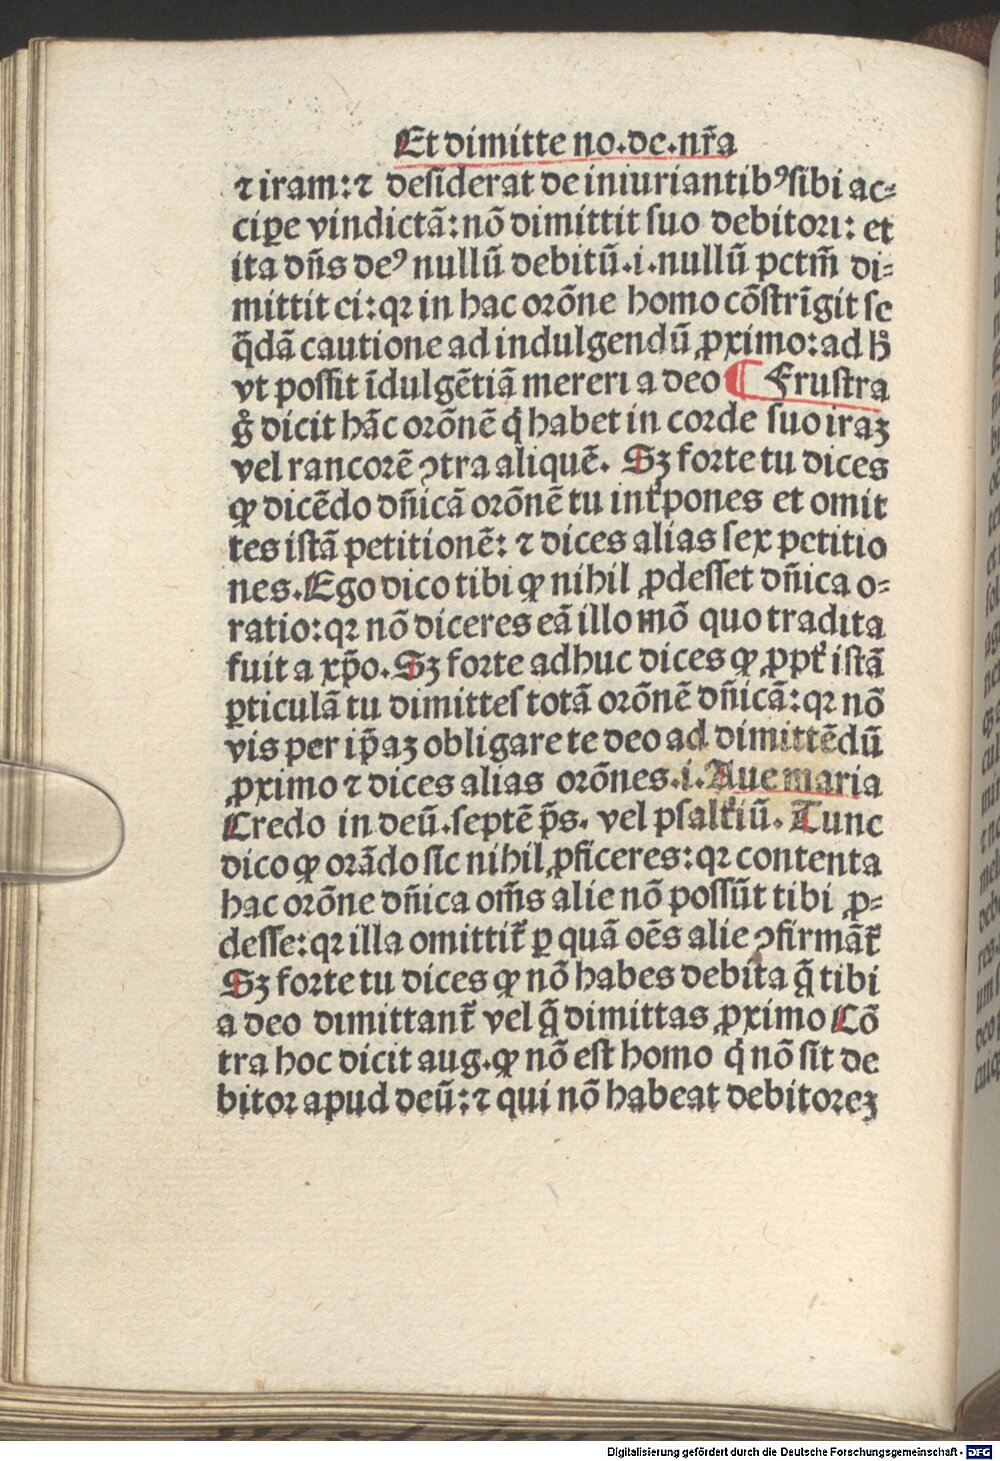 Et dimitte no.de.nr̃a
⁊ iram:⁊ desiderat de iniuriantibꝰ sibi ac⸗
cipe vindictã:nõ dimittit suo debitori: et
ita dñs deꝰ nullũ debitũ.i.nullũ pctm̃ di⸗
mittit ei:qꝛ in hac orõne homo cõstrĩgit se
q̃dã cautione ad indulgendũ ꝓximo:ad hͦ
vt possit ĩdulgẽtiã mereri a deo ¶ Frustra
gͦ dicit hãc orõnẽ qͥ habet in corde suo iraꝫ
vel rancorẽ ↄtra aliquẽ. Sꝫ forte tu dices
ꝙ dicẽdo dñicã orõnẽ tu int̃pones et omit
tes istã petitionẽ: ⁊ dices alias sex petitio
nes.Ego dico tibi ꝙ nihil ꝓdesset dñica o⸗
ratio:qꝛ nõ diceres eã illo mõ quo tradita
fuit a xp̃o.Sꝫ forte adhuc dices ꝙ ꝓpt̃ istã
ꝑticulã tu dimittes totã orõnẽ dñicã:qꝛ nõ
vis per ip̃aꝫ obligare te deo ad dimittẽdũ
ꝓximo ⁊ dices alias orõnes.i.Aue maria
Credo in deũ.septẽ p̃s. vel psalt̃iũ. Tunc
dico ꝙ orãdo sic nihil ꝓficeres:qꝛ contenta
hac orõne dñica om̃s alie nõ possũt tibi ꝓ⸗
desse:qꝛ illa omittit̃ ꝑ quã oẽs alie ↄfirmãt̃
Sꝫ forte tu dices ꝙ nõ habes debita q̃ tibi
a deo dimittant̃ vel q̃ dimittas ꝓximo Cõ
tra hoc dicit aug.ꝙ nõ est homo qͥ nõ sit de
bitor apud deũ:⁊ qui nõ habeat debitoreꝫ
Digitalisierung gefördert durch die Deutsche Forschungsgemeinschaft - DFG